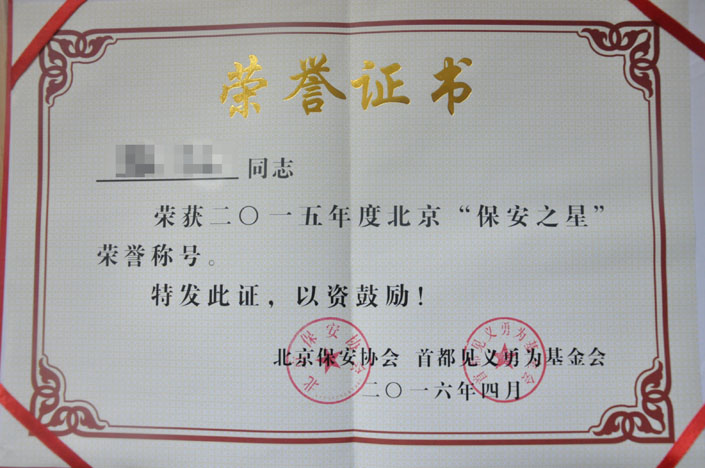 荣誉证书
同志
荣获二〇一五年度北京“保安之星”
荣誉称号。
特发此证，以资鼓励！
北京保安协会 首都见义勇为基金会
二〇一六年四月
北京保安协会
首都见义勇为基金会